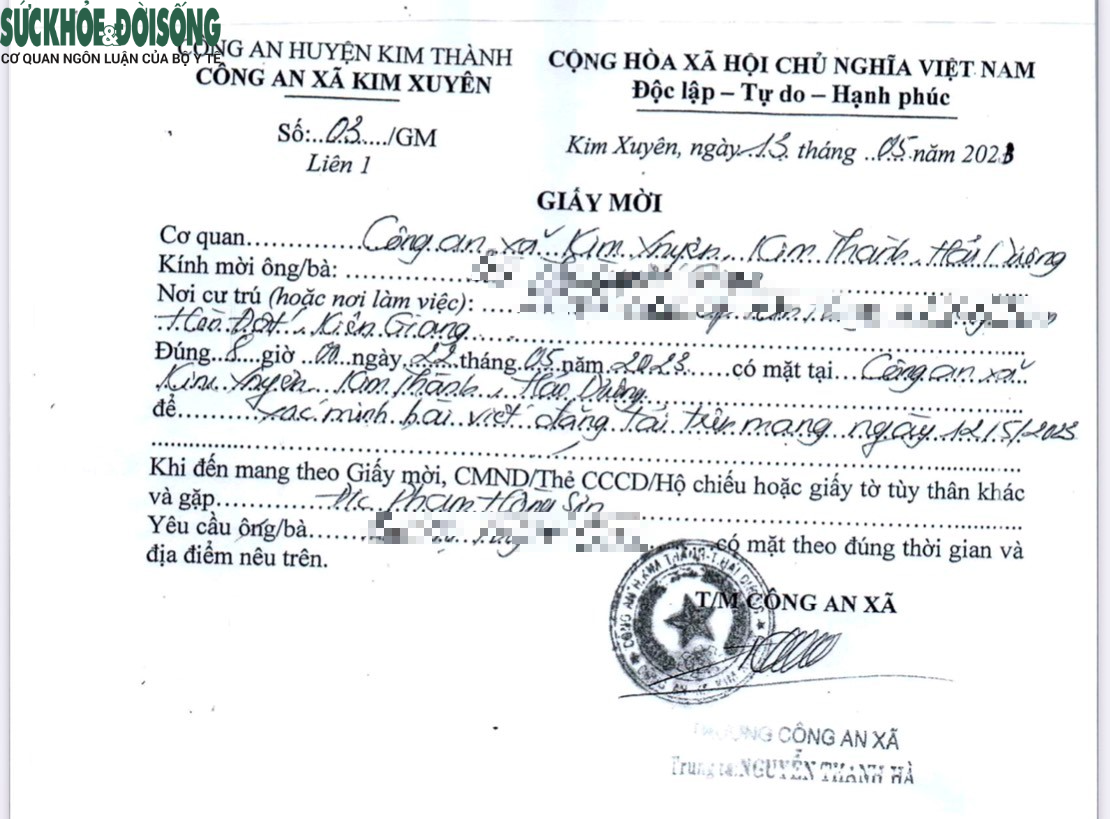 SỨCKHỎE&ĐỜISỐNG
CƠ QUAN NGÔN LUẬN CỦA BỘ Y TẾ
CÔNG AN HUYỆN KIM THÀNH
CÔNG AN XÃ KIM XUYÊN
CỘNG HÒA XÃ HỘI CHỦ NGHĨA VIỆT NAM
Độc lập – Tự do – Hạnh phúc
Số:..03...../GM
Liên 1
Kim Xuyên, ngày 13 tháng 05 năm 2023
GIẤY MỜI
Cơ quan Công an xã Kim Xuyên, Kim Thành, Hải Dương
Kính mời ông/bà:
Nơi cư trú (hoặc nơi làm việc):
Hòn Đất, Kiên Giang
Đúng 8 giờ 00 ngày 22 tháng 05 năm 2023 có mặt tại Công an xã
Kim Xuyên, Kim Thành, Hải Dương
để xác minh bài viết đăng tải trên mạng ngày 12/5/2023
Khi đến mang theo Giấy mời, CMND/Thẻ CCCD/Hộ chiếu hoặc giấy tờ tùy thân khác
và gặp đ/c Phạm Hồng Sơn
Yêu cầu ông/bà có mặt theo đúng thời gian và
địa điểm nêu trên.
T/M CÔNG AN XÃ
TRƯỞNG CÔNG AN XÃ
Trung tá: NGUYỄN THANH HÀ